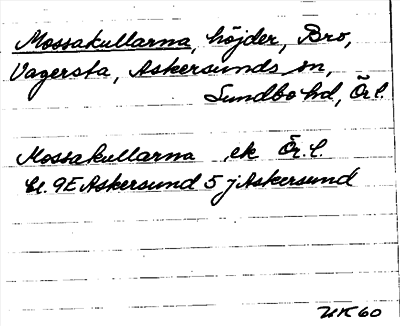 Mossakullarna, höjder, Bro,
Vagersta, Askersunds sn,
Sundbo hd, Ör. l.
Mossakullarna ek Ör. l.
Bl. 9E Askersund 5 j Askersund
UK 60